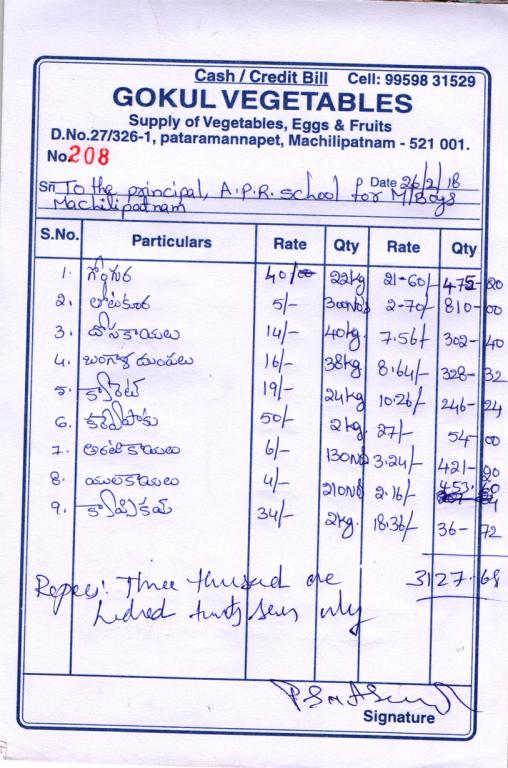 Cash / Credit Bill Cell: 99598 31529
GOKUL VEGETABLES
Supply of Vegetables, Eggs & Fruits
D.No.27/326-1, pataramannapet, Machilipatnam - 521 001.
No. 208
Sri To the principal, A.P.R. school for M/Boys Date 26/2/18
Machilipatnam
S.No. Particulars Rate Qty Rate Qty
1. గోంగుర 40/00 22kg 21-60/- 475-20
2. తోటకూర 5/- 300NOS 2-70/- 810-00
3. దోసకాయలు 14/- 40kg. 7.56/- 302-40
4. బంగాళ దుంపలు 16/- 38kg 8.64/- 328-32
5. క్యారెట్ 19/- 24kg 10.26/- 246-24
6. కరివేపాకు 50/- 2kg. 27/- 54-00
7. అరటికాయలు 6/- 130NOS 3.24/- 421-20
8. 4/- 210NOS 2.16/- 453.60
9. క్యాప్సికమ్ 34/- 2kg. 18.36/- 36-72
3127.68
Rupees: Three thusad one
hudred twenty seven only
Signature